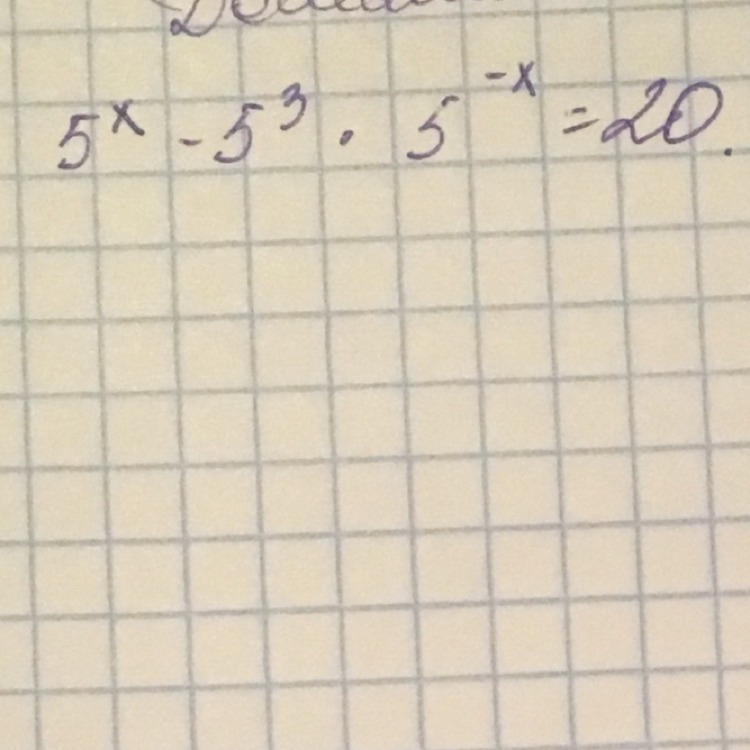 5^x - 5^3 · 5^-x = 20.